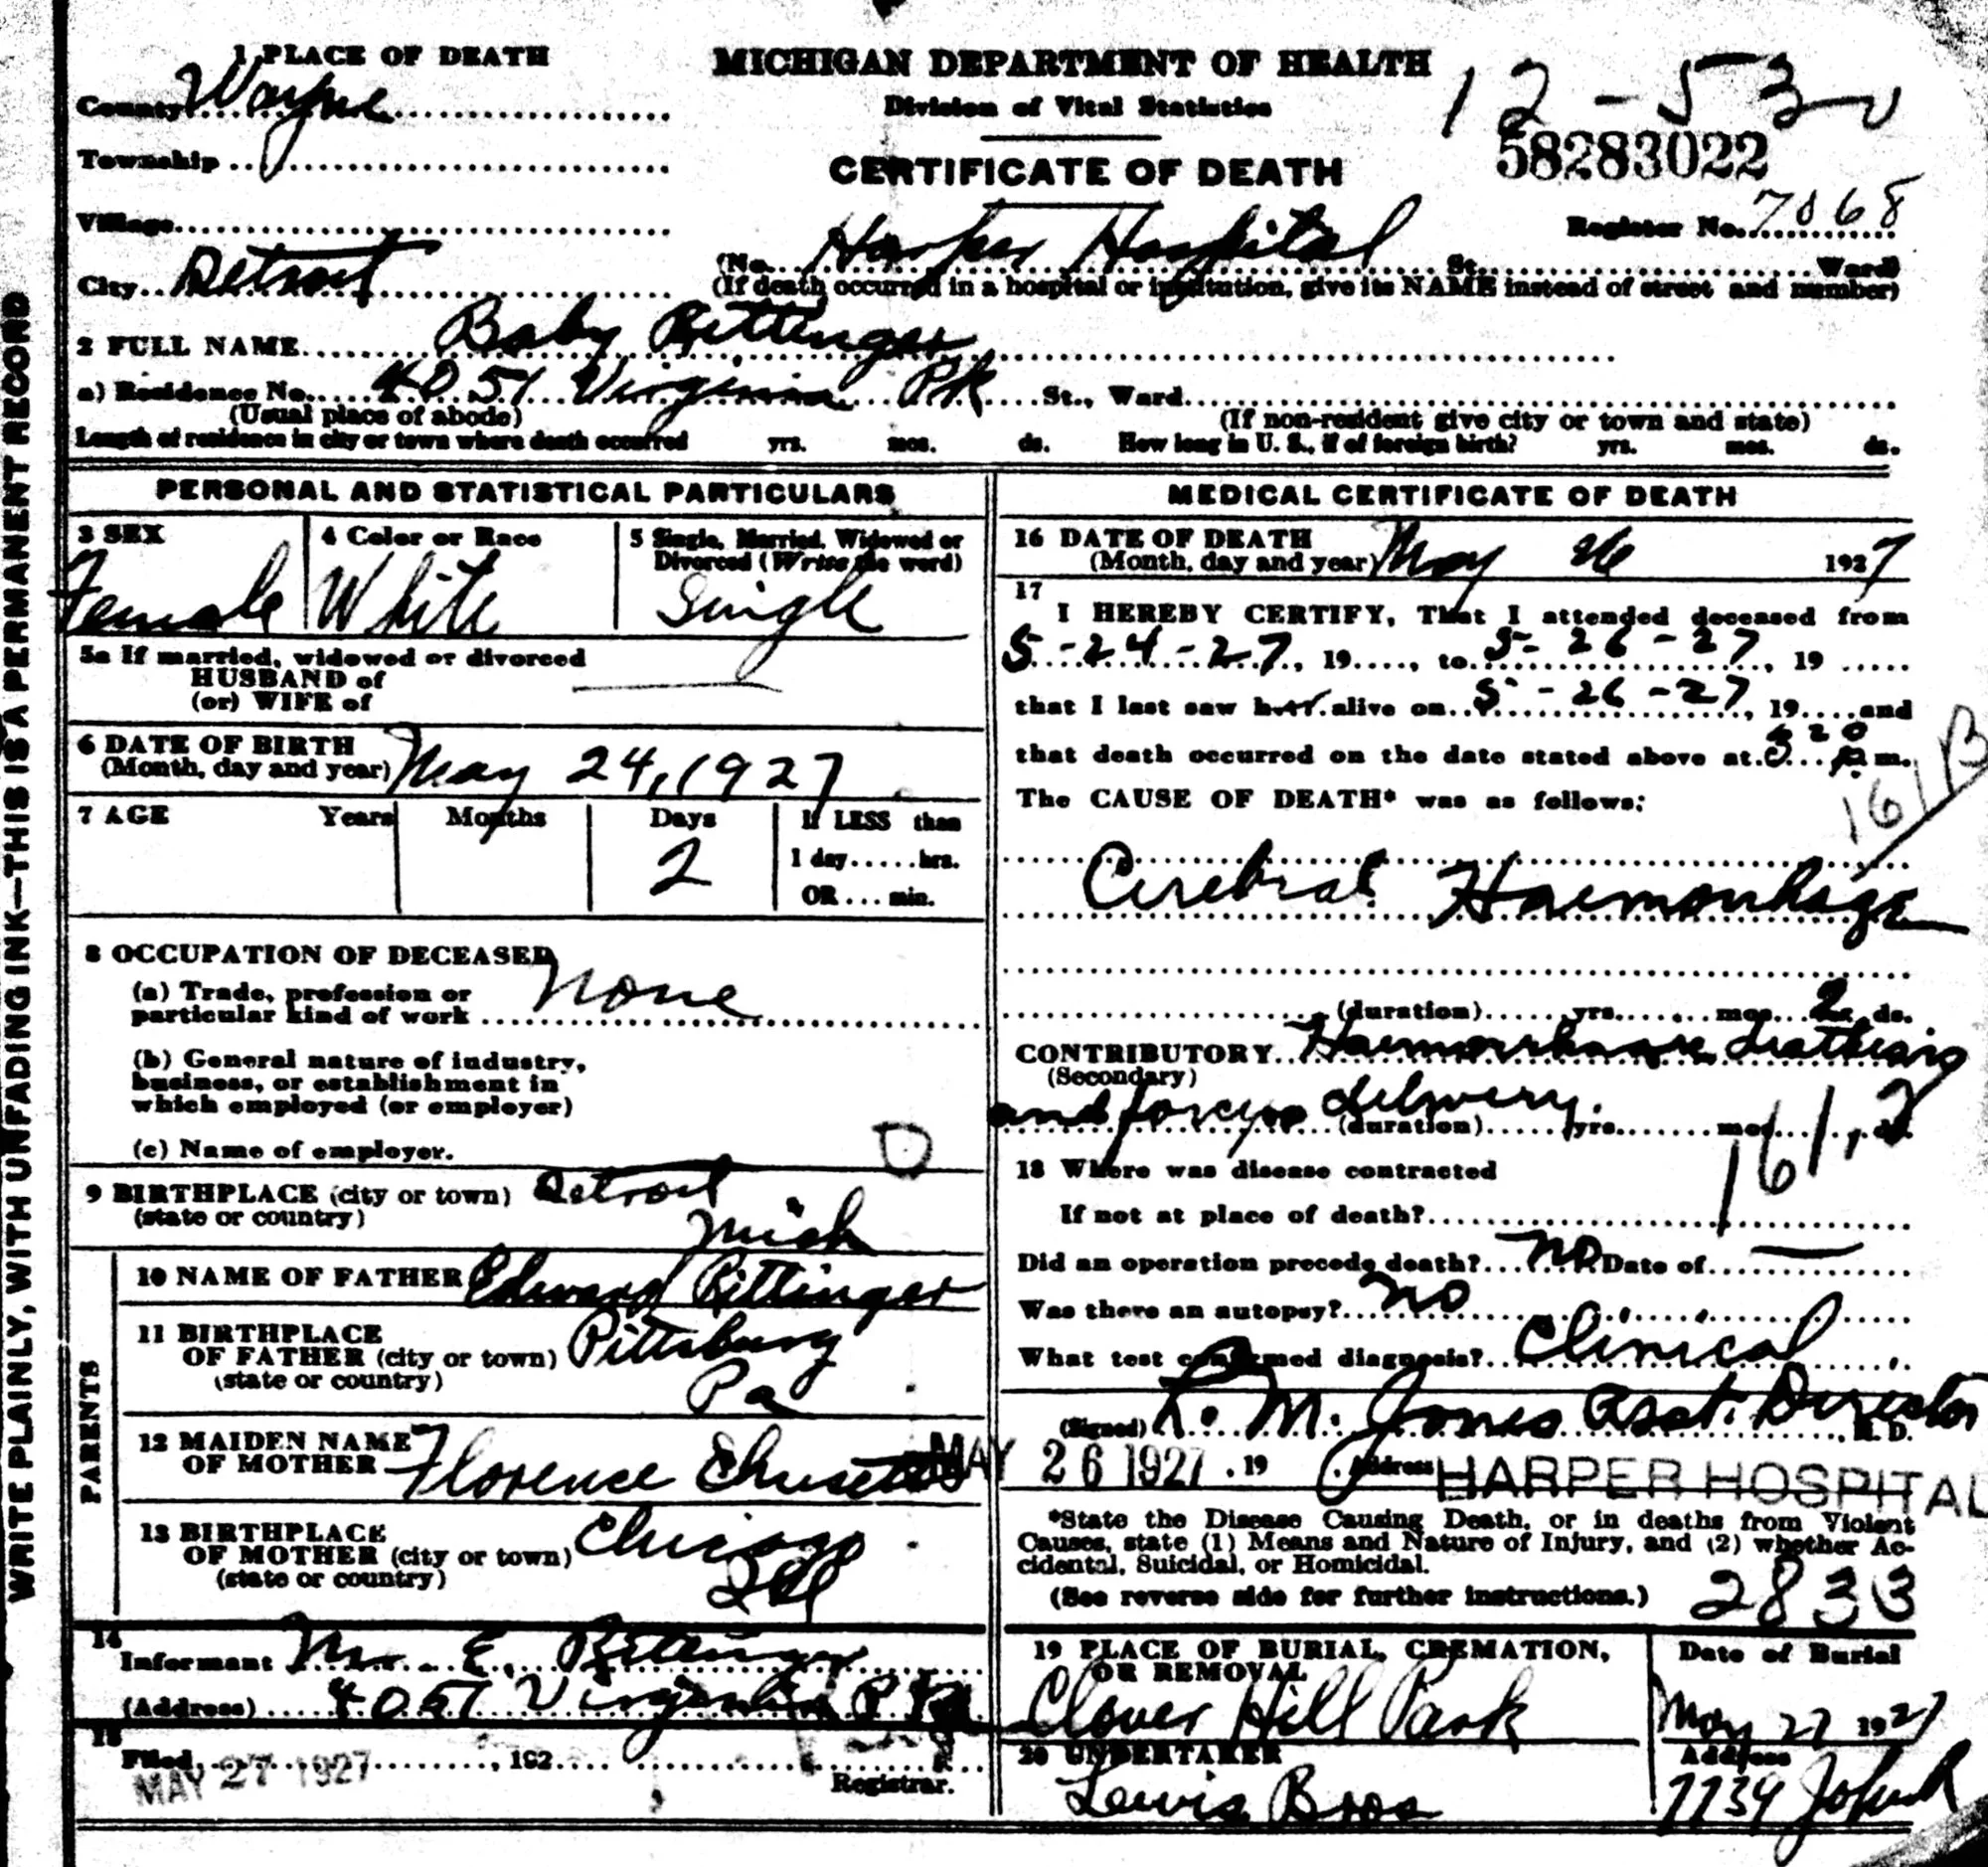 1 PLACE OF DEATH
County Wayne
Township
Village
City Detroit
MICHIGAN DEPARTMENT OF HEALTH
Division of Vital Statistics
CERTIFICATE OF DEATH
12-53
58283022
Register No. 7068
(No. Harper Hospital St. Ward)
(If death occurred in a hospital or institution, give its NAME instead of street and number)
2 FULL NAME Baby Bittinger
a) Residence No. 4051 Virginia Pk St., Ward
(Usual place of abode) (If non-resident give city or town and state)
Length of residence in city or town where death occurred yrs. mos. ds. How long in U. S., if of foreign birth? yrs. mos. ds.
WRITE PLAINLY, WITH UNFADING INK—THIS IS A PERMANENT RECORD
PERSONAL AND STATISTICAL PARTICULARS
3 SEX
Female
4 Color or Race
White
5 Single, Married, Widowed or
Divorced (Write the word)
Single
5a If married, widowed or divorced
HUSBAND of
(or) WIFE of
6 DATE OF BIRTH
(Month, day and year) May 24, 1927
7 AGE Years Months Days If LESS than
2 1 day......hrs.
OR....min.
8 OCCUPATION OF DECEASED
(a) Trade, profession or None
particular kind of work
(b) General nature of industry,
business, or establishment in
which employed (or employer)
(c) Name of employer.
9 BIRTHPLACE (city or town) Detroit
(state or country) Mich
PARENTS
10 NAME OF FATHER Edward Bittinger
11 BIRTHPLACE
OF FATHER (city or town) Pittsburg
(state or country) Pa
12 MAIDEN NAME
OF MOTHER Florence
13 BIRTHPLACE
OF MOTHER (city or town) Chicago
(state or country) Ill
14
Informant Mr. E. Bittinger
(Address) 4051 Virginia Pk
15
Filed MAY 27 1927, 192
Registrar.
MEDICAL CERTIFICATE OF DEATH
16 DATE OF DEATH
(Month, day and year) May 26 1927
17
I HEREBY CERTIFY, That I attended deceased from
5-24-27, 19...., to 5-26-27, 19
that I last saw her alive on 5-26-27, 19....and
that death occurred on the date stated above at m.
161B
The CAUSE OF DEATH* was as follows:
Cerebral Haemorrhage
(duration) yrs. mos. 2 ds.
CONTRIBUTORY Haemorrhagic
(Secondary)
and forceps delivery.
(duration) yrs. mos. ds.
161.2
18 Where was disease contracted
If not at place of death?
Did an operation precede death? No Date of —
Was there an autopsy? No
What test confirmed diagnosis? Clinical
(Signed) M. Jones Asst. Director, M. D.
MAY 26 1927 .19 (Address HARPER HOSPITAL
*State the Disease Causing Death, or in deaths from Violent
Causes, state (1) Means and Nature of Injury, and (2) whether Ac-
cidental, Suicidal, or Homicidal.
(See reverse side for further instructions.)
2833
19 PLACE OF BURIAL, CREMATION,
OR REMOVAL
Clover Hill Park
Date of Burial
May 27 1927
20 UNDERTAKER
Lewis Bros
Address
7739 John R